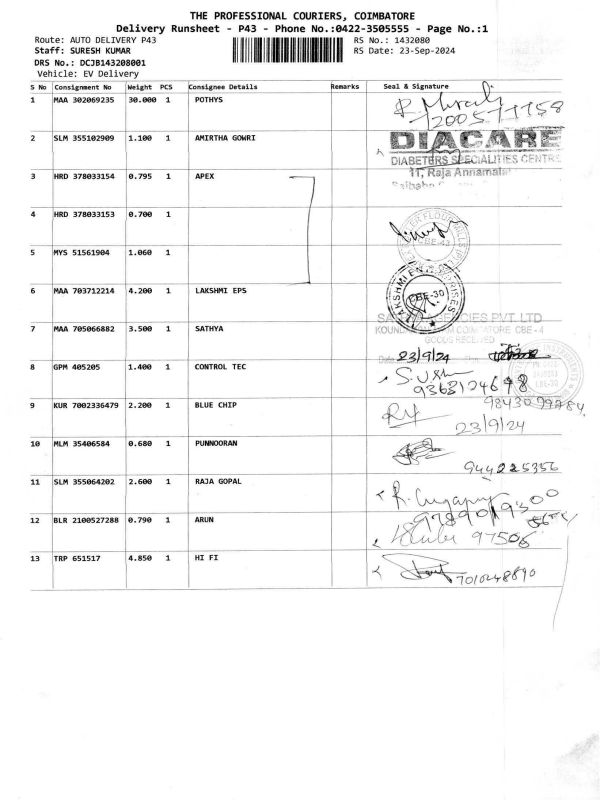 THE PROFESSIONAL COURIERS, COIMBATORE
Delivery Runsheet - P43 - Phone No.:0422-3505555 - Page No.:1
Route: AUTO DELIVERY P43 RS No.: 1432080
Staff: SURESH KUMAR RS Date: 23-Sep-2024
DRS No.: DCJB143208001
Vehicle: EV Delivery
S No Consignment No Weight PCS Consignee Details Remarks Seal & Signature
1 MAA 302069235 30.000 1 POTHYS
2 SLM 355102909 1.100 1 AMIRTHA GOWRI
DIACARE
DIABETERS SPECIALITIES CENTRE
11, Raja Annamalai
Saibaba
3 HRD 378033154 0.795 1 APEX
4 HRD 378033153 0.700 1
5 MYS 51561904 1.060 1
6 MAA 703712214 4.200 1 LAKSHMI EPS
LAKSHMI ENTERPRISES
CBE-30
7 MAA 705066882 3.500 1 SATHYA
AGENCIES PVT. LTD
COIMBATORE CBE - 4
GOODS RECEIVED
Date 23/9/24
8 GPM 405205 1.400 1 CONTROL TEC
9 KUR 7002336479 2.200 1 BLUE CHIP
23/9/24
10 MLM 35406584 0.680 1 PUNNOORAN
944225356
11 SLM 355064202 2.600 1 RAJA GOPAL
12 BLR 2100527288 0.790 1 ARUN
97506
13 TRP 651517 4.850 1 HI FI
7010248890